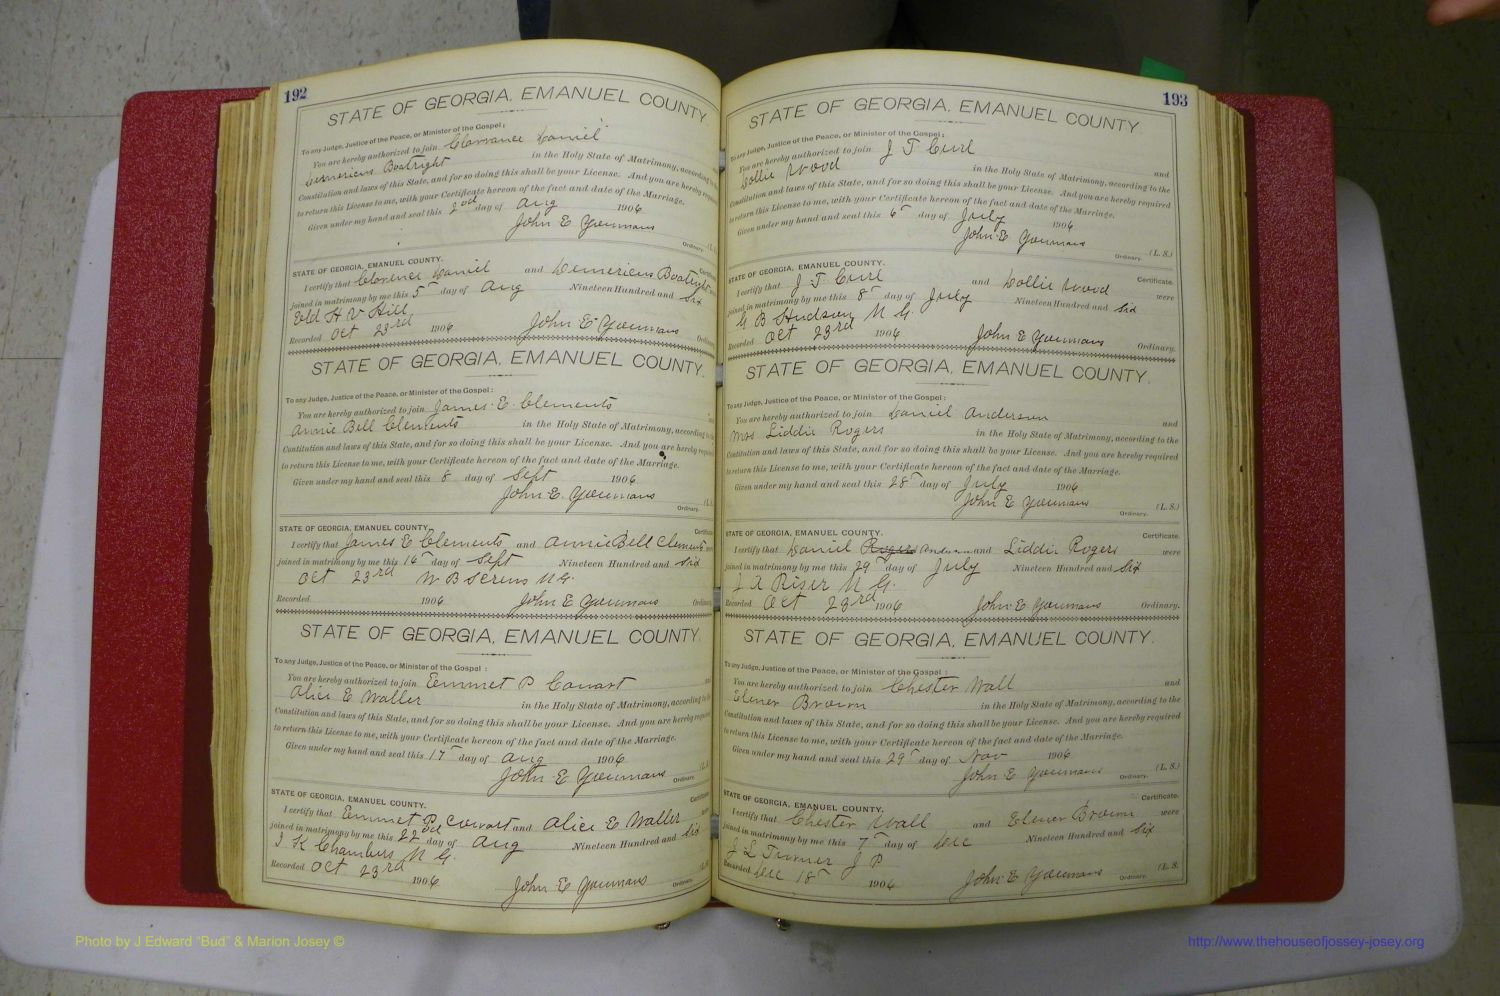 192
STATE OF GEORGIA, EMANUEL COUNTY.
To any Judge, Justice of the Peace, or Minister of the Gospel:
You are hereby authorized to join Clarrance Daniel
Boatright in the Holy State of Matrimony, according to
Constitution and laws of this State, and for so doing this shall be your License. And you are hereby
to return this License to me, with your Certificate hereon of the fact and date of the Marriage.
Given under my hand and seal this 2nd day of Aug 1906
John E Youmans
Ordinary. (L. S.)
STATE OF GEORGIA, EMANUEL COUNTY. Certificate.
I certify that Clarence Daniel and Boatright
joined in matrimony by me this 5" day of Aug Nineteen Hundred and Six
Eld H V Hill
Recorded Oct 23rd 1906 John E Youmans
STATE OF GEORGIA, EMANUEL COUNTY.
To any Judge, Justice of the Peace, or Minister of the Gospel:
You are hereby authorized to join James E. Clements
Annie Bell Clements in the Holy State of Matrimony, according to
Constitution and laws of this State, and for so doing this shall be your License. And you are hereby required
to return this License to me, with your Certificate hereon of the fact and date of the Marriage.
Given under my hand and seal this 8 day of Sept 1906
John E Youmans
Ordinary. (L. S.)
STATE OF GEORGIA, EMANUEL COUNTY. Certificate
I certify that James E Clements and Annie Bell Clements
joined in matrimony by me this 16" day of Sept Nineteen Hundred and Six
Oct 23rd W B Screws M G.
Recorded 1906 John E Youmans Ordinary
STATE OF GEORGIA, EMANUEL COUNTY.
To any Judge, Justice of the Peace, or Minister of the Gospel:
You are hereby authorized to join Emmet P Cowart
Alice E Waller in the Holy State of Matrimony, according to
Constitution and laws of this State, and for so doing this shall be your License. And you are hereby
to return this License to me, with your Certificate hereon of the fact and date of the Marriage.
Given under my hand and seal this 17" day of Aug 1906
John E Youmans Ordinary.
STATE OF GEORGIA, EMANUEL COUNTY. Certificate
I certify that Emmet P. Cowart and Alice E Waller
joined in matrimony by me this 22nd day of Aug Nineteen Hundred and Six
K Chambers M G.
Recorded Oct 23rd 1906 John E Youmans Ordinary.
193
STATE OF GEORGIA, EMANUEL COUNTY.
To any Judge, Justice of the Peace, or Minister of the Gospel:
You are hereby authorized to join J T Curl and
Dollie Wood in the Holy State of Matrimony, according to the
Constitution and laws of this State, and for so doing this shall be your License. And you are hereby required
to return this License to me, with your Certificate hereon of the fact and date of the Marriage.
Given under my hand and seal this 6" day of July 1906
John E Youmans
Ordinary. (L. S.)
STATE OF GEORGIA, EMANUEL COUNTY. Certificate.
I certify that J T Curl and Dollie Wood were
joined in matrimony by me this 8" day of July Nineteen Hundred and Six
G B Hudson M G.
Recorded Oct 23rd 1906 John E Youmans Ordinary.
STATE OF GEORGIA, EMANUEL COUNTY.
To any Judge, Justice of the Peace, or Minister of the Gospel:
You are hereby authorized to join Daniel Anderson and
Mrs Liddie Rogers in the Holy State of Matrimony, according to the
Constitution and laws of this State, and for so doing this shall be your License. And you are hereby required
to return this License to me, with your Certificate hereon of the fact and date of the Marriage.
Given under my hand and seal this 28" day of July 1906
John E Youmans
Ordinary. (L. S.)
STATE OF GEORGIA, EMANUEL COUNTY. Certificate.
I certify that Daniel Rogers Anderson and Liddie Rogers were
joined in matrimony by me this 29" day of July Nineteen Hundred and Six
J A Riser M G.
Recorded Oct 23rd 1906 John E Youmans Ordinary.
STATE OF GEORGIA, EMANUEL COUNTY.
To any Judge, Justice of the Peace, or Minister of the Gospel:
You are hereby authorized to join Chester Wall and
Elener Brown in the Holy State of Matrimony, according to the
Constitution and laws of this State, and for so doing this shall be your License. And you are hereby required
to return this License to me, with your Certificate hereon of the fact and date of the Marriage.
Given under my hand and seal this 29" day of Nov 1906
John E Youmans Ordinary. (L. S.)
STATE OF GEORGIA, EMANUEL COUNTY. Certificate.
I certify that Chester Wall and Elener Brown were
joined in matrimony by me this 7" day of Dec Nineteen Hundred and Six
J L Turner J P
Recorded Dec 18" 1906 John E Youmans Ordinary. (L. S.
Photo by J Edward "Bud" & Marion Josey ©
http://www.thehouseofjossey-josey.org